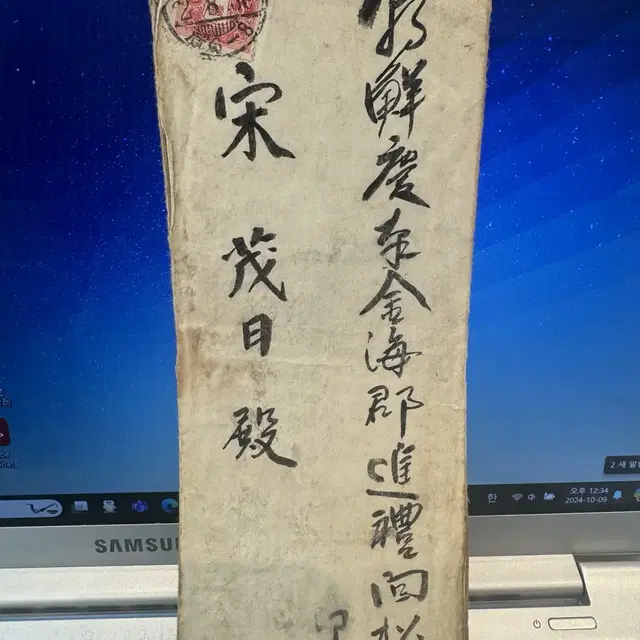 朝鮮慶南金海郡進禮面
宋茂日殿
2 새
한
오후 12:34
2024-10-09
SAMSU